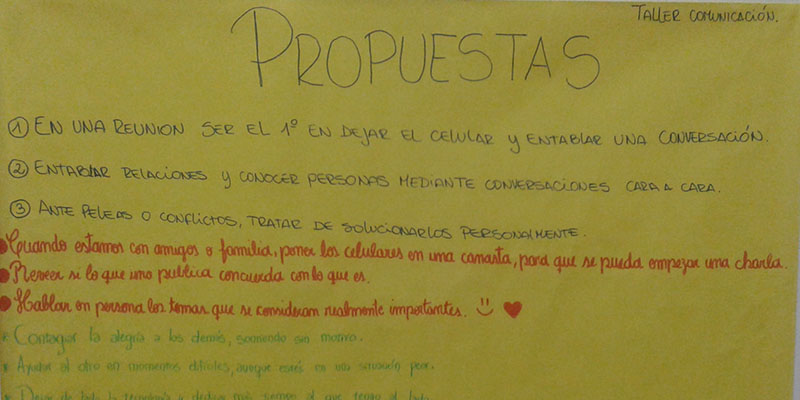 TALLER COMUNICACIÓN.
PROPUESTAS
① EN UNA REUNION SER EL 1º EN DEJAR EL CELULAR Y ENTABLAR UNA CONVERSACIÓN.
② ENTABLAR RELACIONES Y CONOCER PERSONAS MEDIANTE CONVERSACIONES CARA A CARA.
③ ANTE PELEAS O CONFLICTOS, TRATAR DE SOLUCIONARLOS PERSONALMENTE.
• Cuando estamos con amigos o familia, poner los celulares en una canasta, para que se pueda empezar una charla.
• Preveer si lo que uno publica concuerda con lo que es.
• Hablar en persona los temas que se consideran realmente importantes. ☺ ♥
* Contagiar la alegría a los demás, sonriendo sin motivo.
* Ayudar al otro en momentos difíciles, aunque estés en una situación peor.
* Dejar de lado la tecnología y dedicar más tiempo al que tengo al lado.